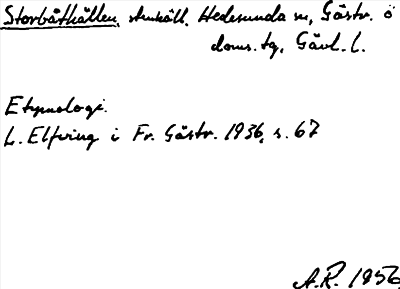 Storbåthällen, stenhäll, Hedesunda sn, Gästr. ö
doms. tg, Gävl. l.
Etymologi.
L. Elfving i Fr. Gästr. 1936, s. 67
A.R. 1956